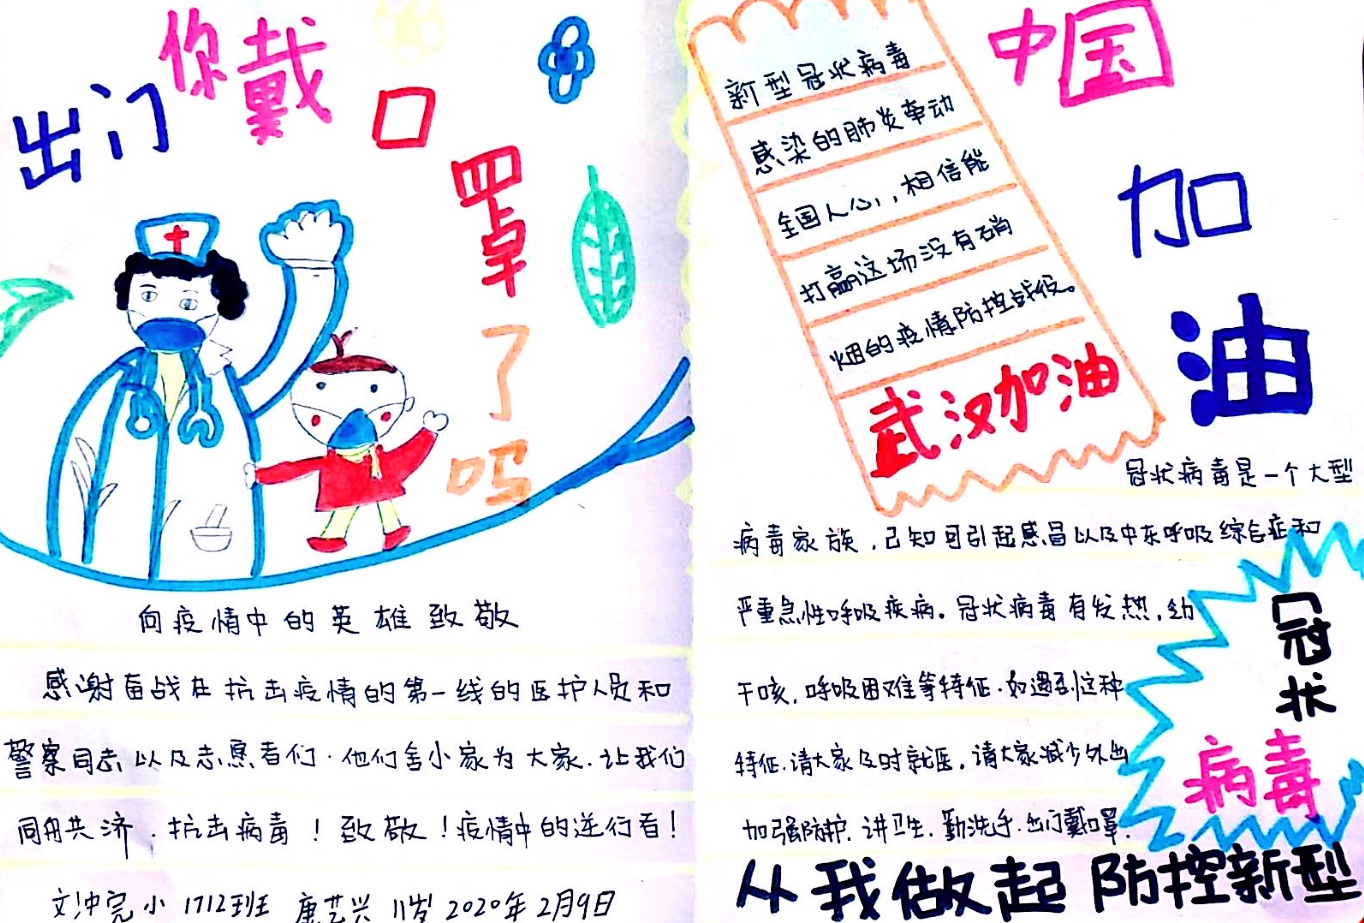 出门你戴口罩了吗
向疫情中的英雄致敬
感谢奋战在抗击疫情的第一线的医护人员和
警察同志以及志愿者们.他们舍小家为大家.让我们
同舟共济.抗击病毒!致敬!疫情中的逆行者!
文冲完小 1712班 康艺兴 11岁 2020年2月9日
新型冠状病毒
感染的肺炎牵动
全国人心,,相信能
打赢这场没有硝
烟的疫情防控战役。
武汉加油
中国加油
冠状病毒是一个大型
病毒家族,已知可引起感冒以及中东呼吸综合症和
严重急性呼吸疾病。冠状病毒有发热,幼
干咳,呼吸困难等特征.如遇到这种
特征.请大家及时就医,请大家减少外出
加强防护.讲卫生.勤洗手.出门戴口罩.
冠状
病毒
从我做起 防控新型